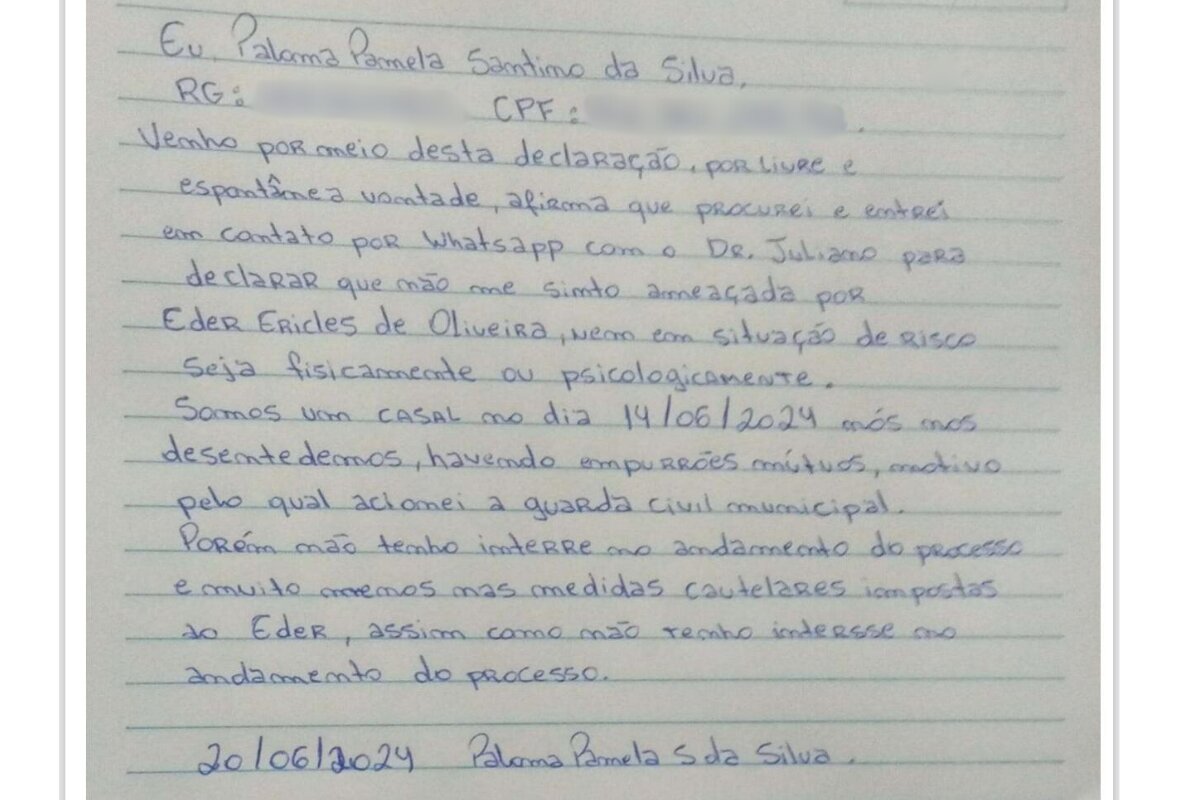 Eu, Paloma Pamela Santino da Silva,
RG: CPF: .
Venho por meio desta declaração, por livre e
espontânea vontade, afirma que procurei e entrei
em contato por Whatsapp com o Dr. Juliano para
declarar que não me sinto ameaçada por
Eder Ericles de Oliveira, nem em situação de risco
seja fisicamente ou psicologicamente.
Somos um casal no dia 14/06/2024 nós nos
desentedemos, havendo empurrões mútuos, motivo
pelo qual acionei a guarda civil municipal.
Porém não tenho interre no andamento do processo
e muito menos nas medidas cautelares impostas
ao Eder, assim como não tenho intersse no
andamento do processo.
20/06/2024 Paloma Pamela S da Silva.